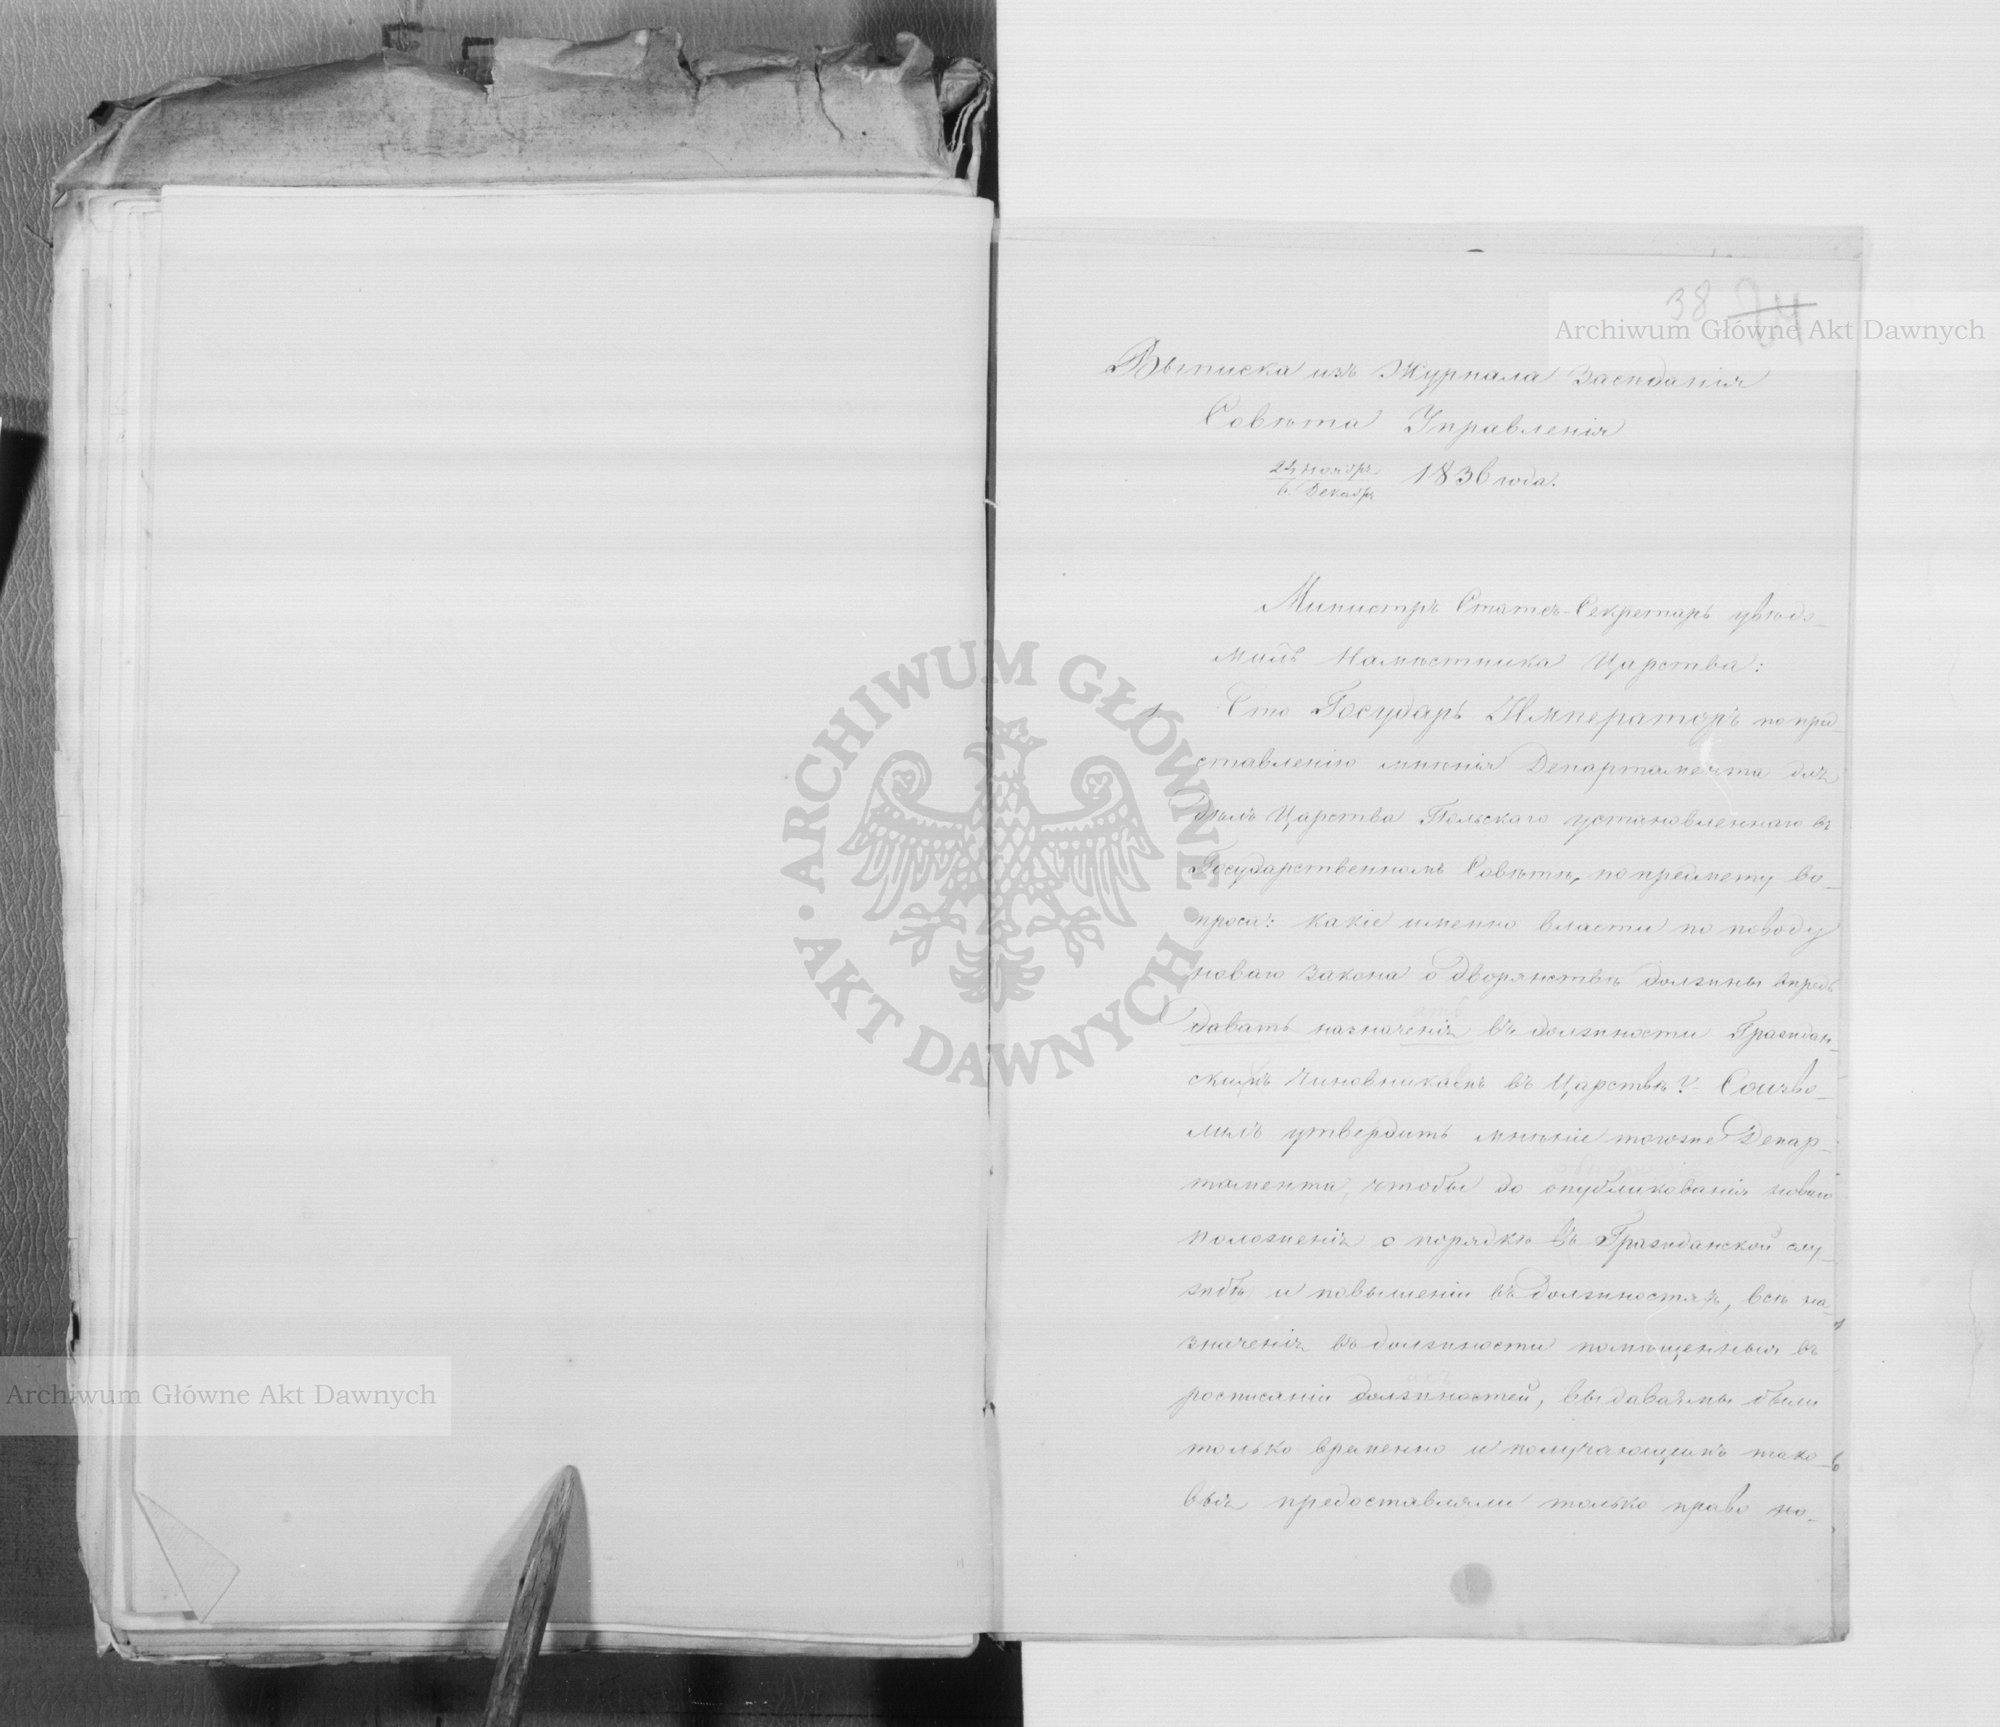 38 24
Выписка изъ Журнала Засѣданія
Совѣта Управленія
24 Ноябр.
6 Декабр. 1836 года.
Министръ Статсъ-Секретарь увѣдо-
милъ Намѣстника Царства:
1. Что Государь Императоръ по пред-
ставленію мнѣнія Департамента для
дѣлъ Царства Польскаго установленнаго въ
Государственномъ Совѣтѣ, по предмету во-
проса: какіе именно власти по поводу
новаго закона о дворянствѣ должны впредь
давать назначенія въ должности Граждан-
скимъ чиновникамъ въ Царствѣ? Соизво-
лилъ утвердить мнѣніе тогоже Депар-
тамента, чтобы до опубликованія новаго
положенія о порядкѣ въ Гражданской слу-
жбѣ и повышеніи въ должностяхъ, всѣ на-
значенія въ должности помѣщенныя въ
росписаніи должностей, выдаваемы были
только временно и получающимъ тако-
выя предоставляли только право но-
Archiwum Główne Akt Dawnych
ARCHIWUM GŁÓWNE · AKT DAWNYCH ·
Archiwum Główne Akt Dawnych